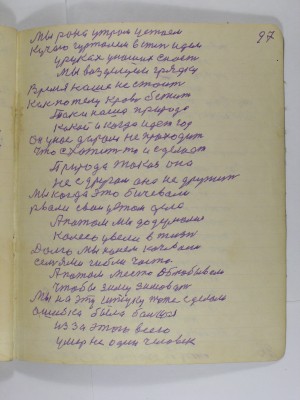 97
Мы рано утром устаем
Кучаю гуртоми в степ идем
у руках унашия снаст
Мы возделуем грядку
Время наше не стоит
Как потему кровь бежит
Такая наша природа
Какой и когда идет год
Он у нас даром не проходит
Што схотит то и сделает
Природа такая она
Не с другом она не дружит
Мы когда это бичевали
рвали свои утом дела
Апотом мы додумали
Колесо увели
Долго мы конем качевали
семями гибли часто
Апотом место облюбывали
чтобы зиму зимоват
Мы на эту штуку тоже сделали
Ошибка была большая
из за этого всего
умер не один человек